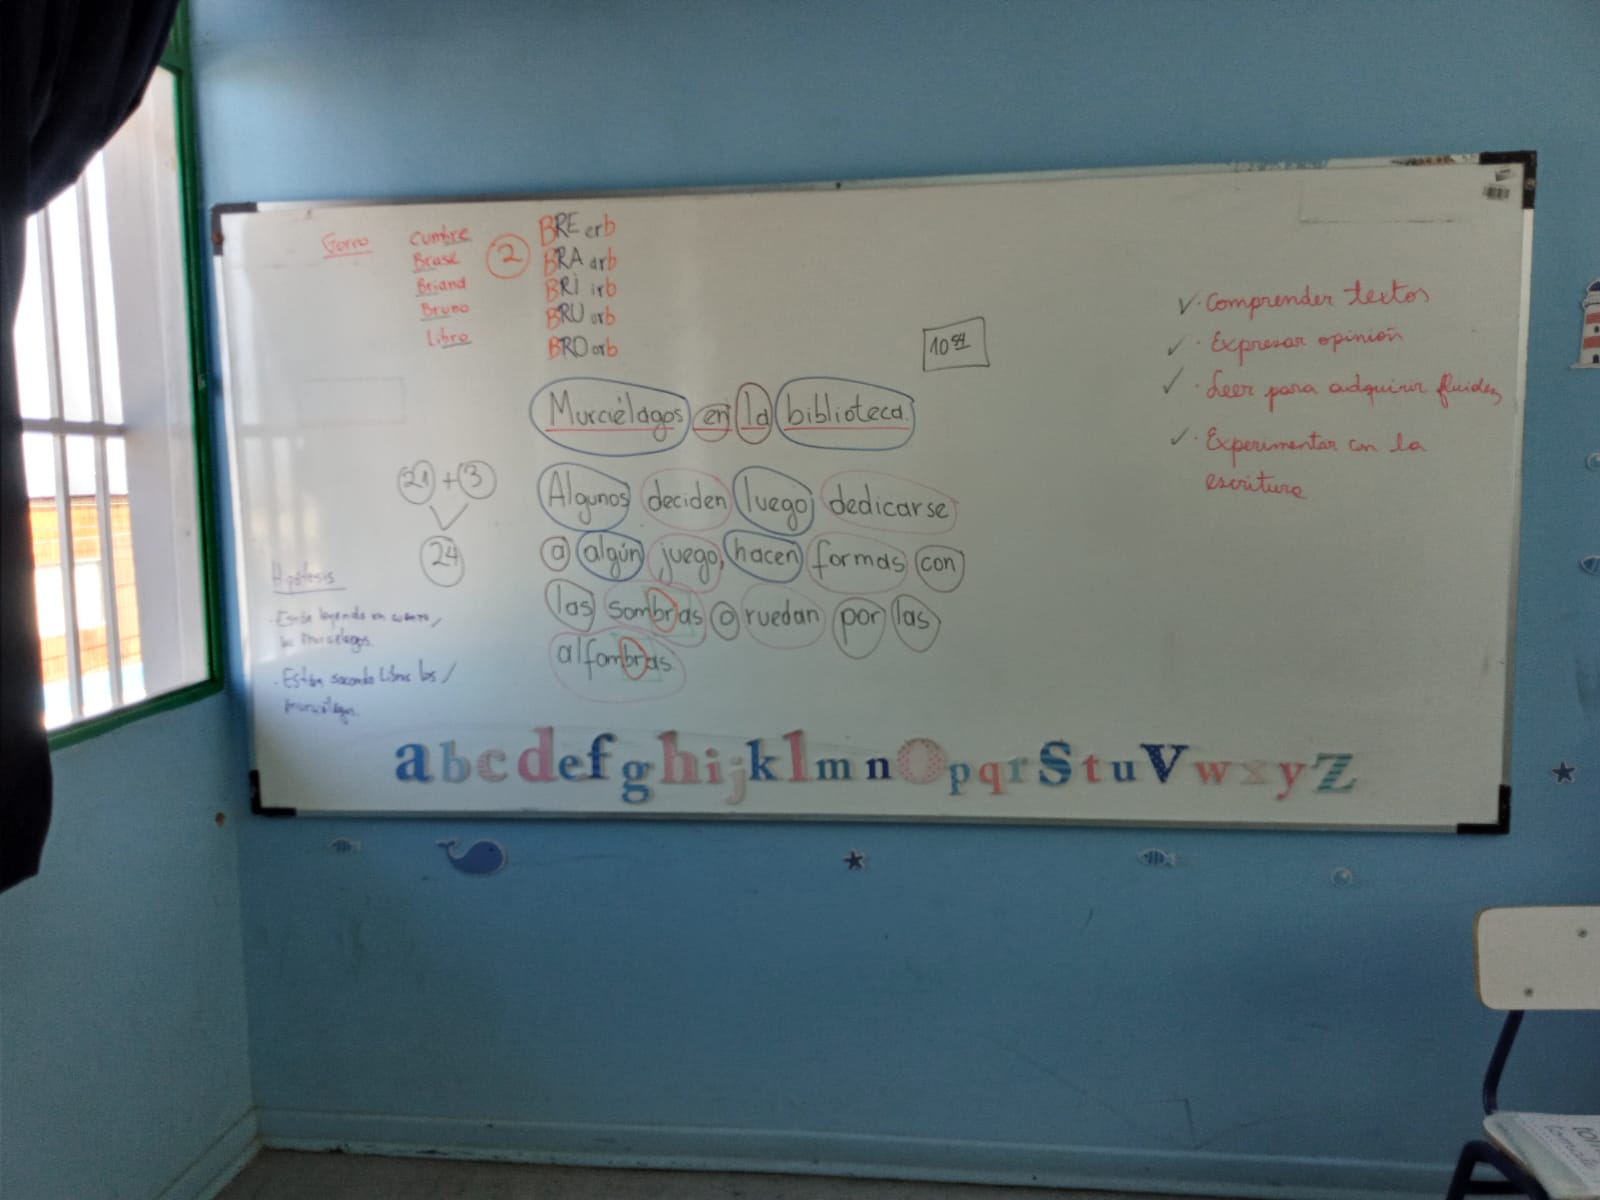 Gorro
Cumbre
Brase
Briand
Bruno
Libro
2
BRE erb
BRA arb
BRI irb
BRU urb
BRO orb
10
Murciélagos en la biblioteca.
21 + 3
24
Algunos deciden luego dedicarse
a algún juego, hacen formas con
las sombras o ruedan por las
alfombras.
Hipótesis
- Están leyendo un cuento,
los murciélagos.
- Están sacando libros los
murciélagos.
✓ · Comprender textos
✓ · Expresar opinión
✓ · Leer para adquirir fluidez
✓ · Experimentar con la
escritura
a b c d e f g h i j k l m n O p q r S t u V w x y Z